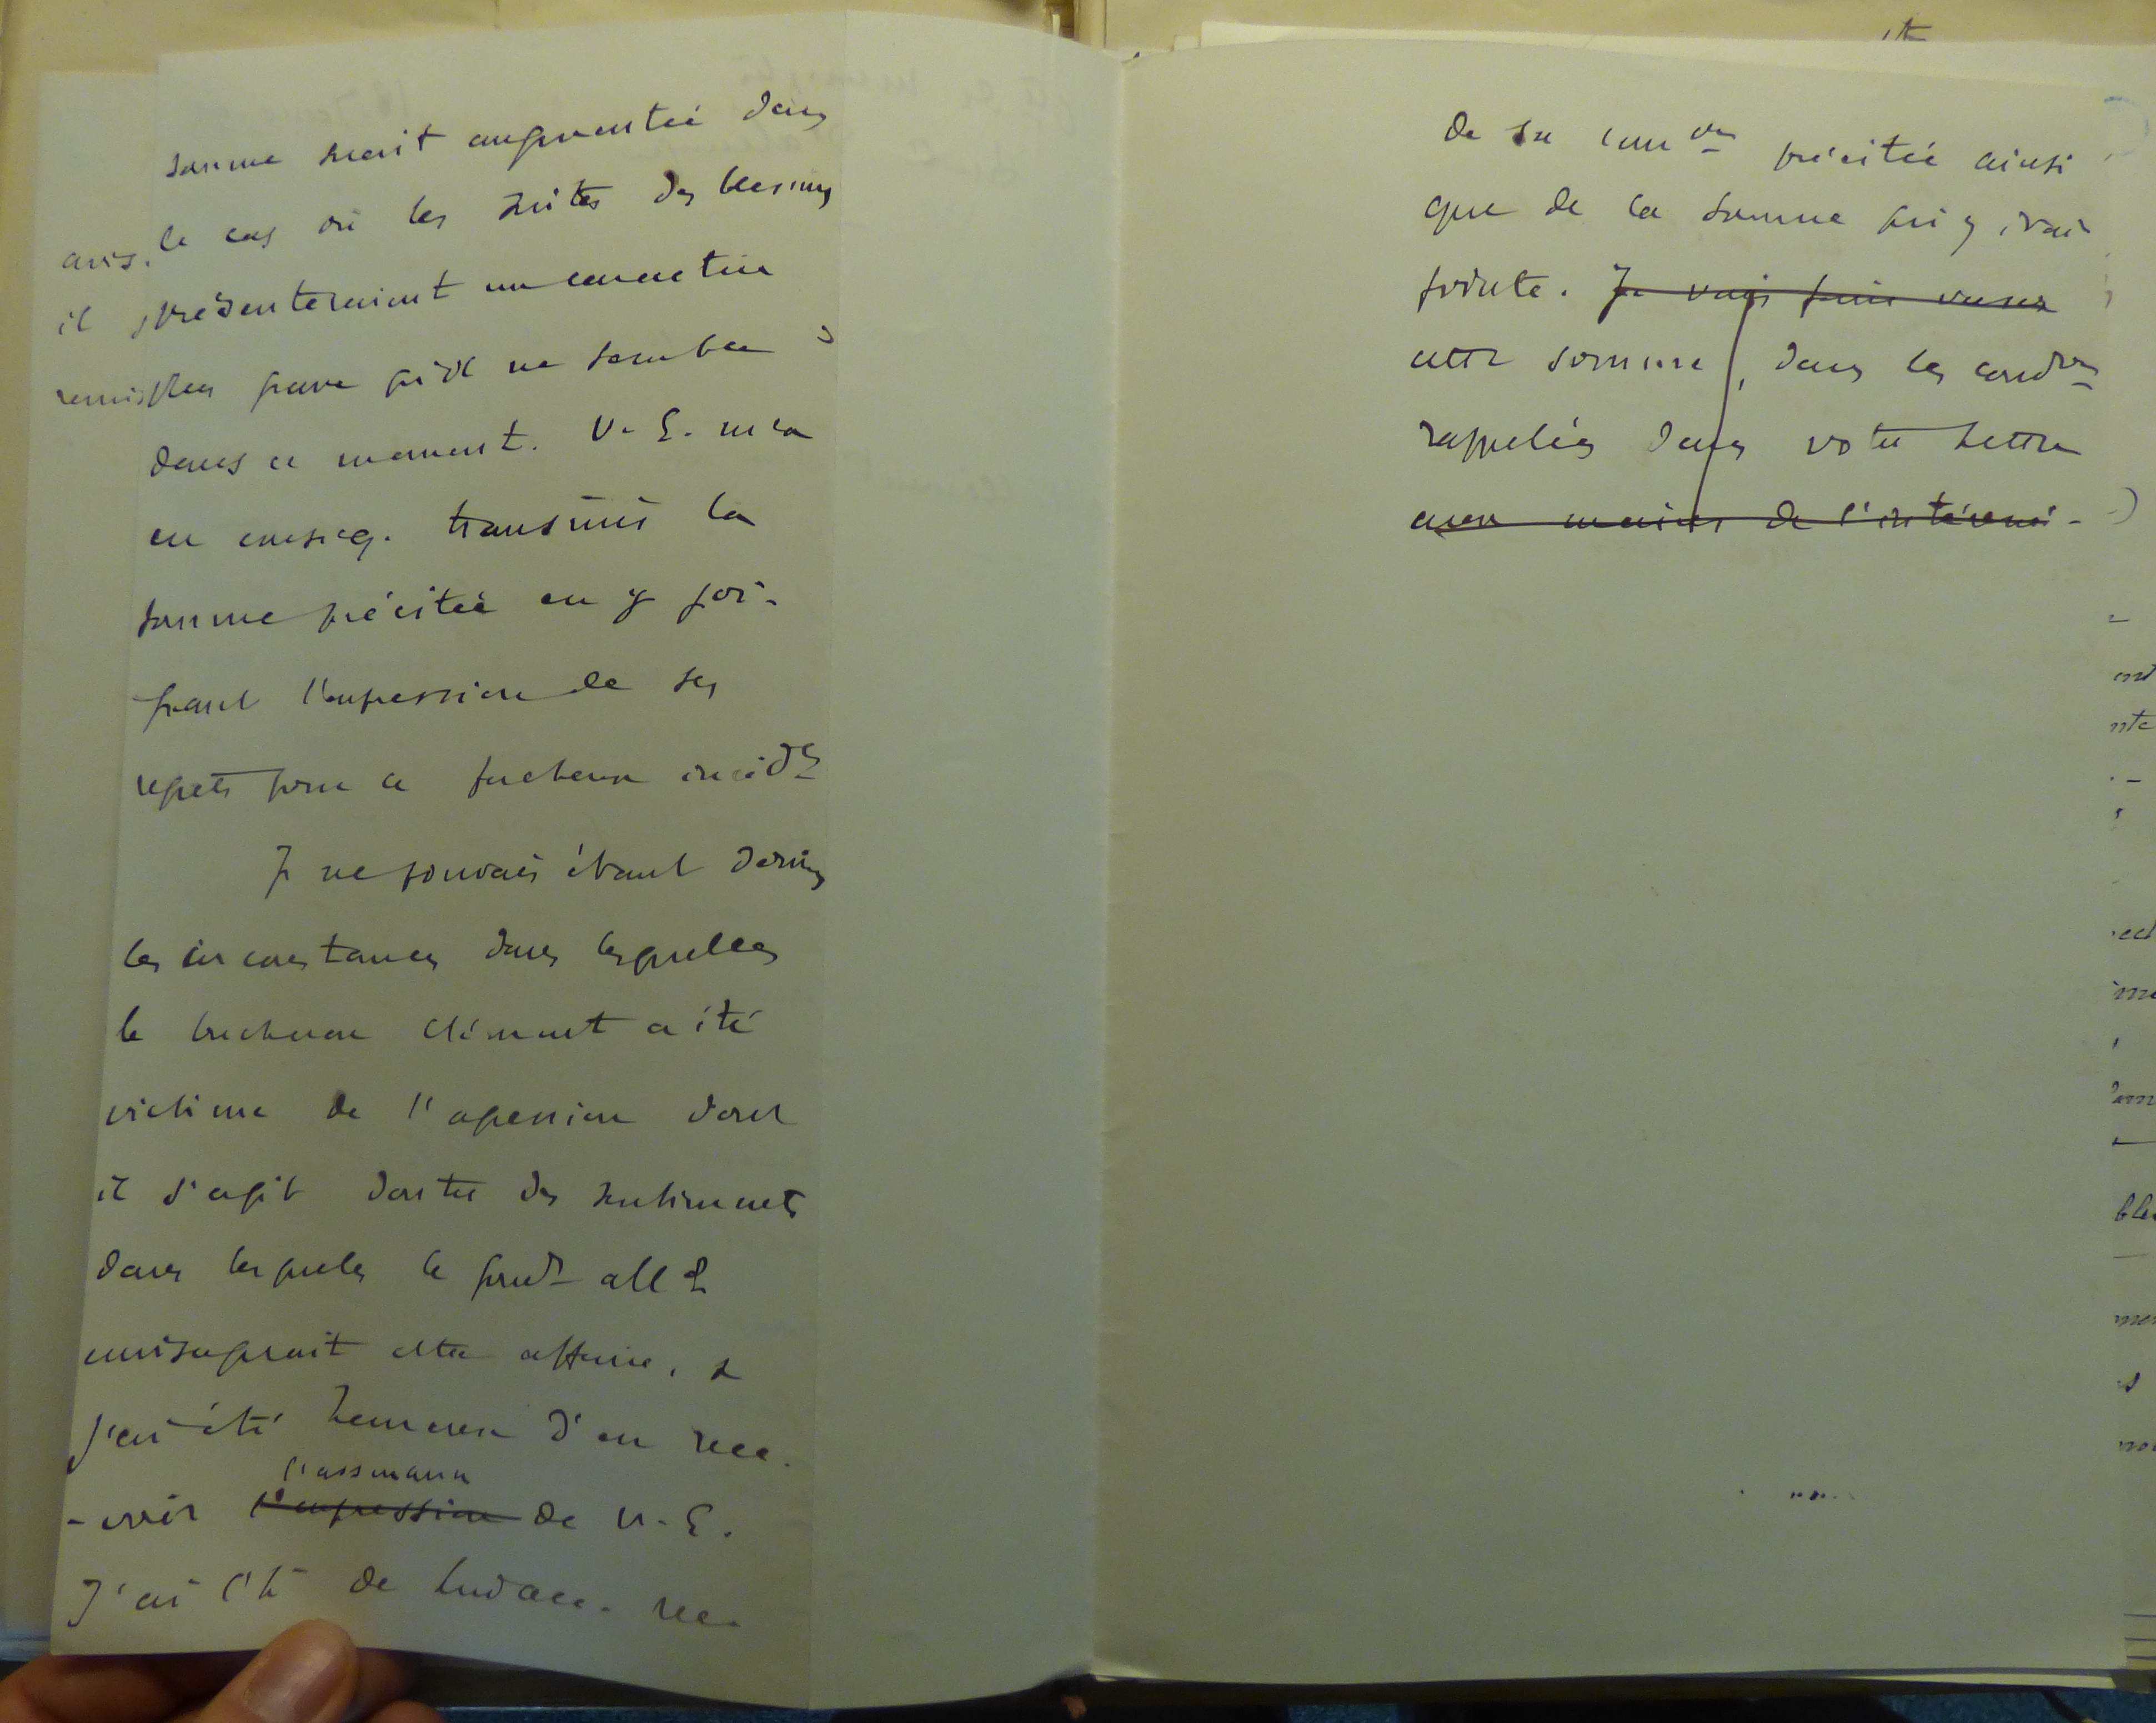 somme serait augmentée dans
le cas où les suites des blessures
présenteraient un caractère
plus grave qu'il ne semble
dans ce moment. V. E. m'a
en conseq. transmis la
somme précitée en y joi-
gnant l'expression de ses
regrets pour ce fâcheux incidt
Je ne pouvais étant données
les circonstances dans lesquelles
le bucheron Clément a été
victime de l'agression dont
il s'agit douter des sentiments
dans lesquels le gouvt alld
envisageait cette affaire, &
j'ai été heureux d'en rece-
l'assurance
-voir l'expression de V. E.
J'ai l'h de lui acc. rec.
avis.
il
remis
de sa comon précitée ainsi
que de la somme qui y était
jointe. Je vais faire verser
cette somme, dans les condons
rappelées dans votre lettre
aux mains de l'intéressé.